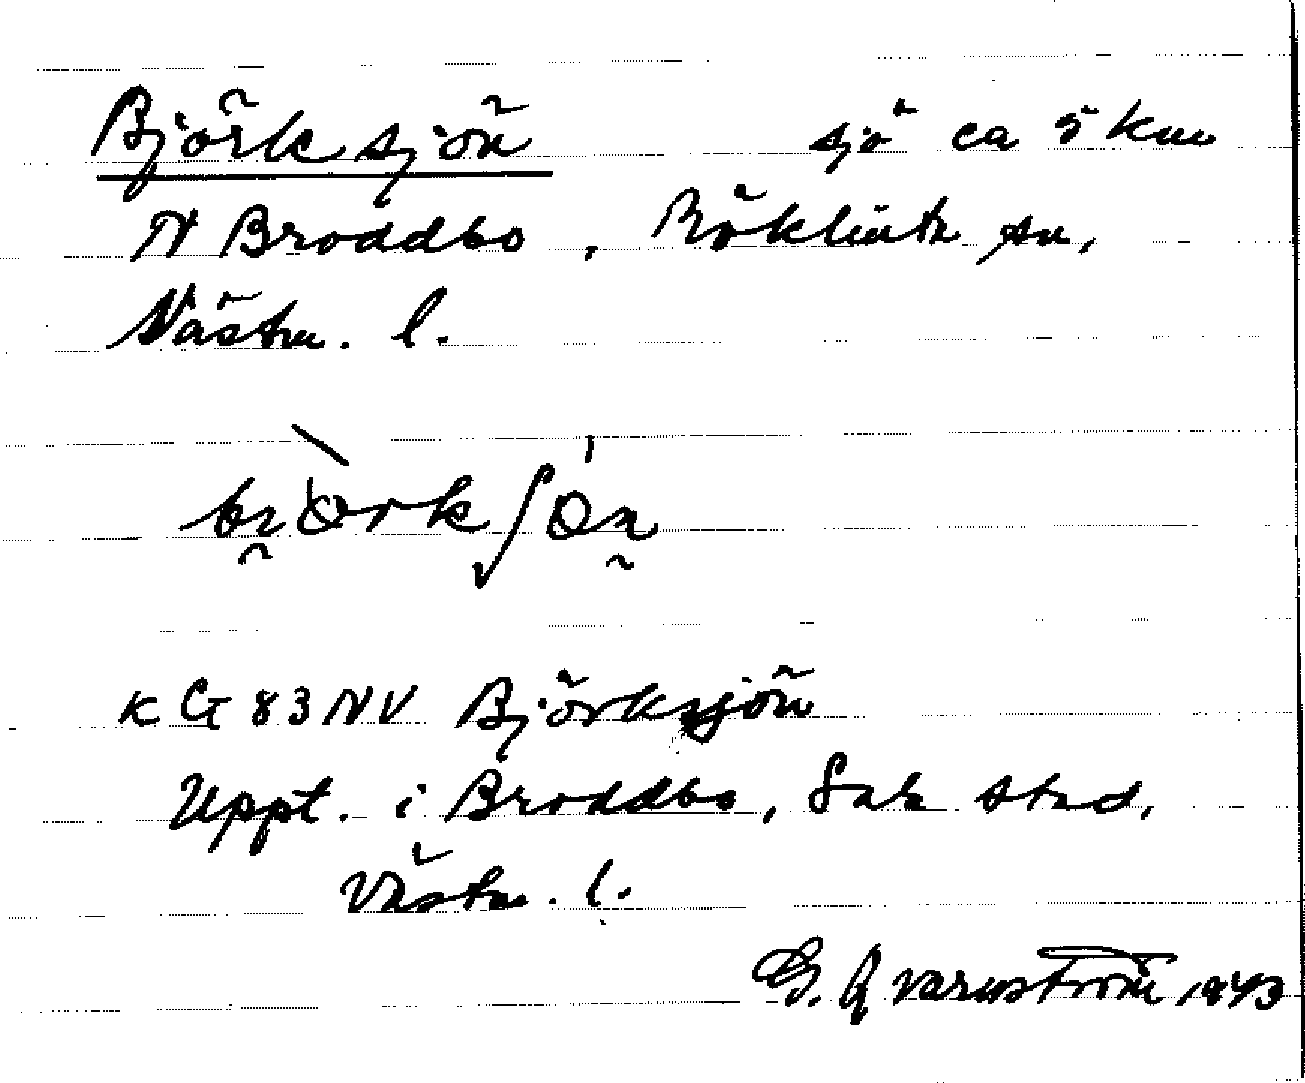 Björksjön sjö ca 5 km
N Broddbo, Möklinta sn,
Västm. l.
KG 83 NV Björksjön
Uppt. i Broddbo, Sala stad,
Västm. l.
G. Qvarnström 1943